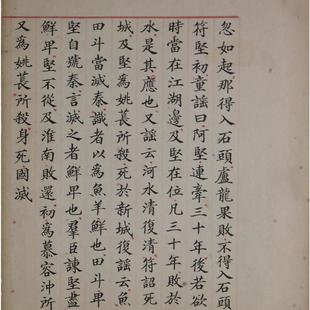 忽如起那得入石頭盧龍果敗不得入石頭
符堅初童謡曰阿堅連牽三十年後若欲
時當在江湖邊及堅在位凡三十年敗於
水是其應也又謡云河水清復清符詔死
城及堅為姚萇所殺死於新城復謡云魚
田斗當滅秦識者以為魚羊鮮也田斗卑
堅自號秦言滅之者鮮卑也羣臣諫堅盡
鮮卑堅不從及淮南敗還初為慕容冲所
又為姚萇所殺身死國滅